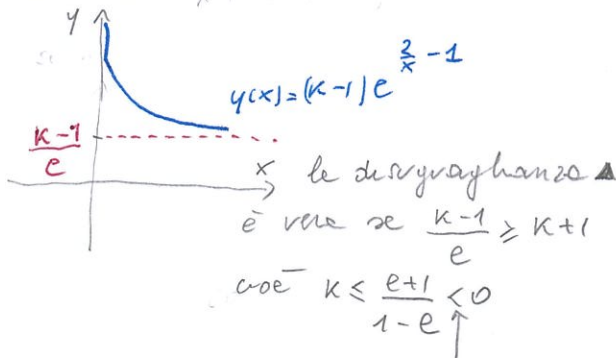 y
y(x)=(k-1) e^{\frac{2}{x}-1}
\frac{k-1}{e}
x
la disuguaglianza ▲
è vera se \frac{k-1}{e} ≥ k+1
cioè k ≤ \frac{e+1}{1-e} < 0
↑